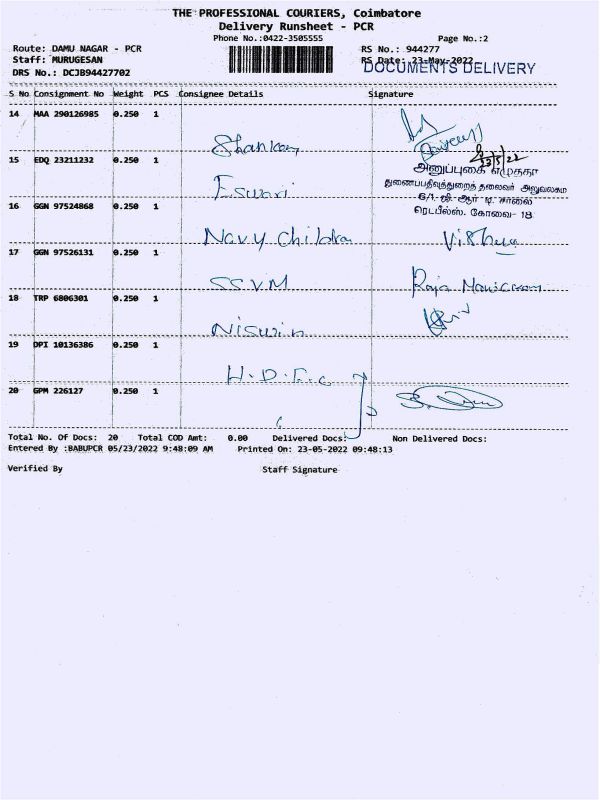 THE PROFESSIONAL COURIERS, Coimbatore
Delivery Runsheet - PCR
Phone No.:0422-3505555 Page No.:2
Route: DAMU NAGAR - PCR RS No.: 944277
Staff: MURUGESAN RS Date: 23-May-2022
DRS No.: DCJB94427702 DOCUMENTS DELIVERY
S No Consignment No Weight PCS Consignee Details Signature
14 MAA 290126985 0.250 1
Shankar
15 EDQ 23211232 0.250 1
23/5/22
அனுப்புகை எழுதகர்
துணைப்பதிவுத்துறைத் தலைவர் அலுவலகம்
6/1, ஜி. ஆர். டி. சாலை
ரெட்பீல்ஸ், கோவை- 18.
Eswari
16 GGN 97524868 0.250 1
Navy Children Vishnu
17 GGN 97526131 0.250 1
SSVM Raja Manickam
18 TRP 6806301 0.250 1
Niswin
19 DPI 10136386 0.250 1
H.D.F.C
20 GPM 226127 0.250 1
Total No. Of Docs: 20 Total COD Amt: 0.00 Delivered Docs: Non Delivered Docs:
Entered By :BABUPCR 05/23/2022 9:48:09 AM Printed On: 23-05-2022 09:48:13
Verified By Staff Signature